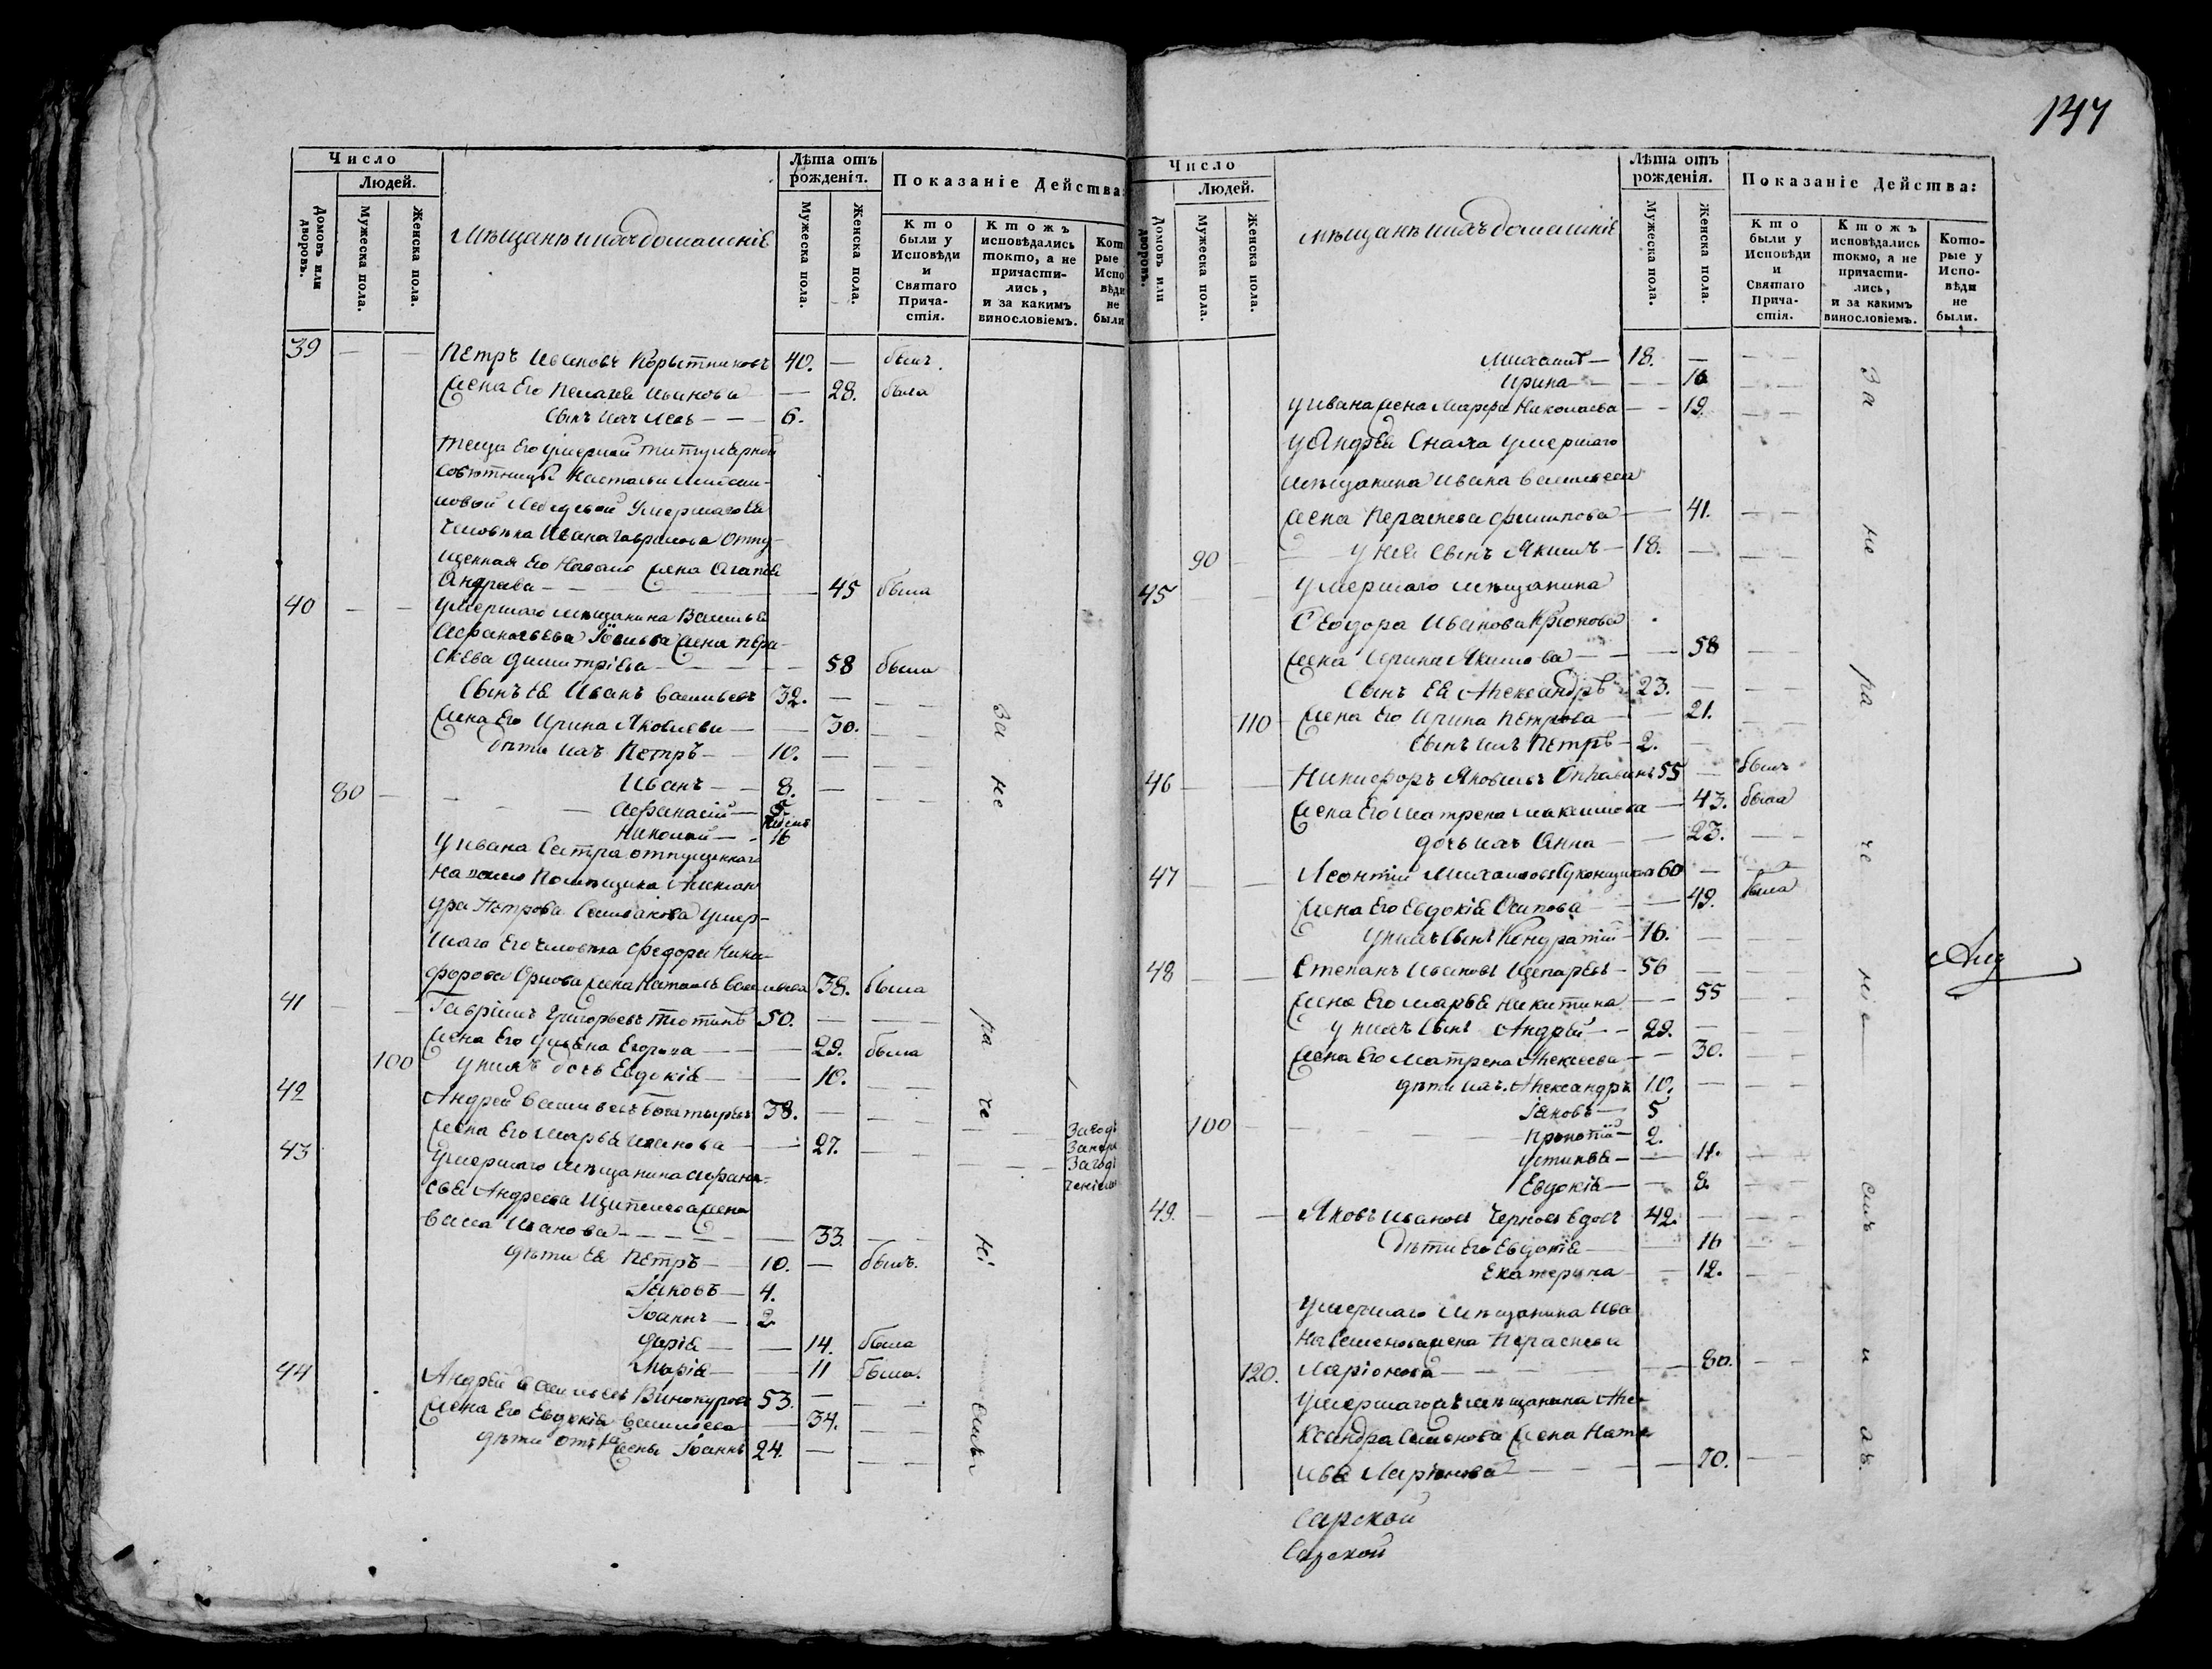 Число
Людей.
Домовъ или дворовъ.
Мужеска пола.
Женска пола.
Мѣщанѣ и ихъ домашніѣ
Лѣта отъ рожденія.
Мужеска пола.
Женска пола.
Показаніе Действа:
Кто были у Исповѣди и Святаго Прича-стія.
Ктожъ исповѣдались токмо, а не причасти-лись, и за какимъ винословіемъ.
Кот
рые
Испо
вѣди
не
были
39 — — Петръ Ивановъ Корытниковъ 40. — былъ.
жена Его Пелагея Иванова — 28. была
Сынъ ихъ Левъ — — 6.
теща Его умершей титулярной
Совѣтницы Настасьи
новой Лебедевой Умершаго Ея
человѣка Ивана Гаврилова отпу-
щенная Его на волю жена Агапея
Андреева — — 45 была
40 — — умершаго мѣщанина Василья
Афанасьева жена пера-
скева Димитріева — — 58 была
Сынъ Ея Иванъ Васильевъ 32. —
жена Его Ирина Яковлева — — 30.
дѣти ихъ Петръ — 10. —
80 — Иванъ — 8. —
Афанасій — 5
Николай — 16
у Ивана Сестра отпущеннаго
на волю Помѣщика Алексан
дра Петрова умер-
шаго Его человѣка Федора Ники-
форова Орлова жена Наталья Васильева 38. была
41 — — Гаврилъ Григорьевъ Тютинъ 50. —
жена Его Ульяна Егорова — 29. была
100 у нихъ дочь Евдокія — — 10.
42 Андрей Васильевъ Богатыревъ 38. —
жена Его Марья Иванова — — 27.
43 Умершаго Мѣщанина Афана-
сья Андреева жена
Васса Иванова — — 33.
дѣти Ея Петръ — 10. — былъ.
Іаковъ — 4.
Іоаннъ — 2
Дарія — — 14. была
Марія — — 11 была.
44 Андрей Васильевъ Винокуровъ 53. —
жена Его Евдокія Васильева — 34.
дѣти отъ 1й жены Іоаннъ 24. —
За не ра че ні емъ
147
Число
Людей.
Домовъ или дворовъ.
Мужеска пола.
Женска пола.
мѣщанѣ и ихъ домашніѣ
Лѣта отъ рожденія.
Мужеска пола.
Женска пола.
Показаніе Действа:
Кто были у Исповѣди и Святаго Прича-стія.
Ктожъ исповѣдались токмо, а не причасти-лись, и за какимъ винословіемъ.
Кото-рые у Испо-вѣди не были.
Михаилъ — 18. —
Ирина — — 16
у Ивана жена Марфа Николаева — — 19.
у Андрея Сноха умершаго
мѣщанина Ивана Васильева
жена Пераскева Филипова — — 41.
90 у нея Сынъ Якимъ — 18. —
45 умершаго мѣщанина
Феодора Иванова Крюкова
жена Ирина Якимова — — 58
Сынъ Ея Александръ — 23. —
110 жена Его Ирина Петрова — — 21.
Сынъ ихъ Петръ — 2. —
46 — — Никифоръ Яковлевъ 55 — былъ
жена Его Матрена Максимова — 43. была
дочь ихъ Анна — — 23.
47 — — Леонтій Михайловъ 60 —
жена Его Евдокія Осипова — — 49. была
у нихъ Сынъ Кондратій — 16. —
48 — — Степанъ Ивановъ — 56 —
жена Его Марья Никитина — — 55
у нихъ Сынъ Андрей — — 29. —
жена Его Матрена Алексеева — — 30.
дѣти ихъ. Александръ 10. —
Іаковъ — 5
100 Прокопій — 2.
Устинья — — 11.
Евдокія — — 8.
49. — — Яковъ Ивановъ Черновъ вдовъ 42. —
дѣти Его Евдокія — — 16
Екатерина — 12.
Умершаго мѣщанина Ива
на Семенова жена Пераскева
120. Ларіонова — — 80.
умершагожъ мѣщанина Але-
ксандра Семенова жена Ната
лья Ларіонова — — 70.
За не ра че ніе мъ и хъ.
Сарской
Сарской